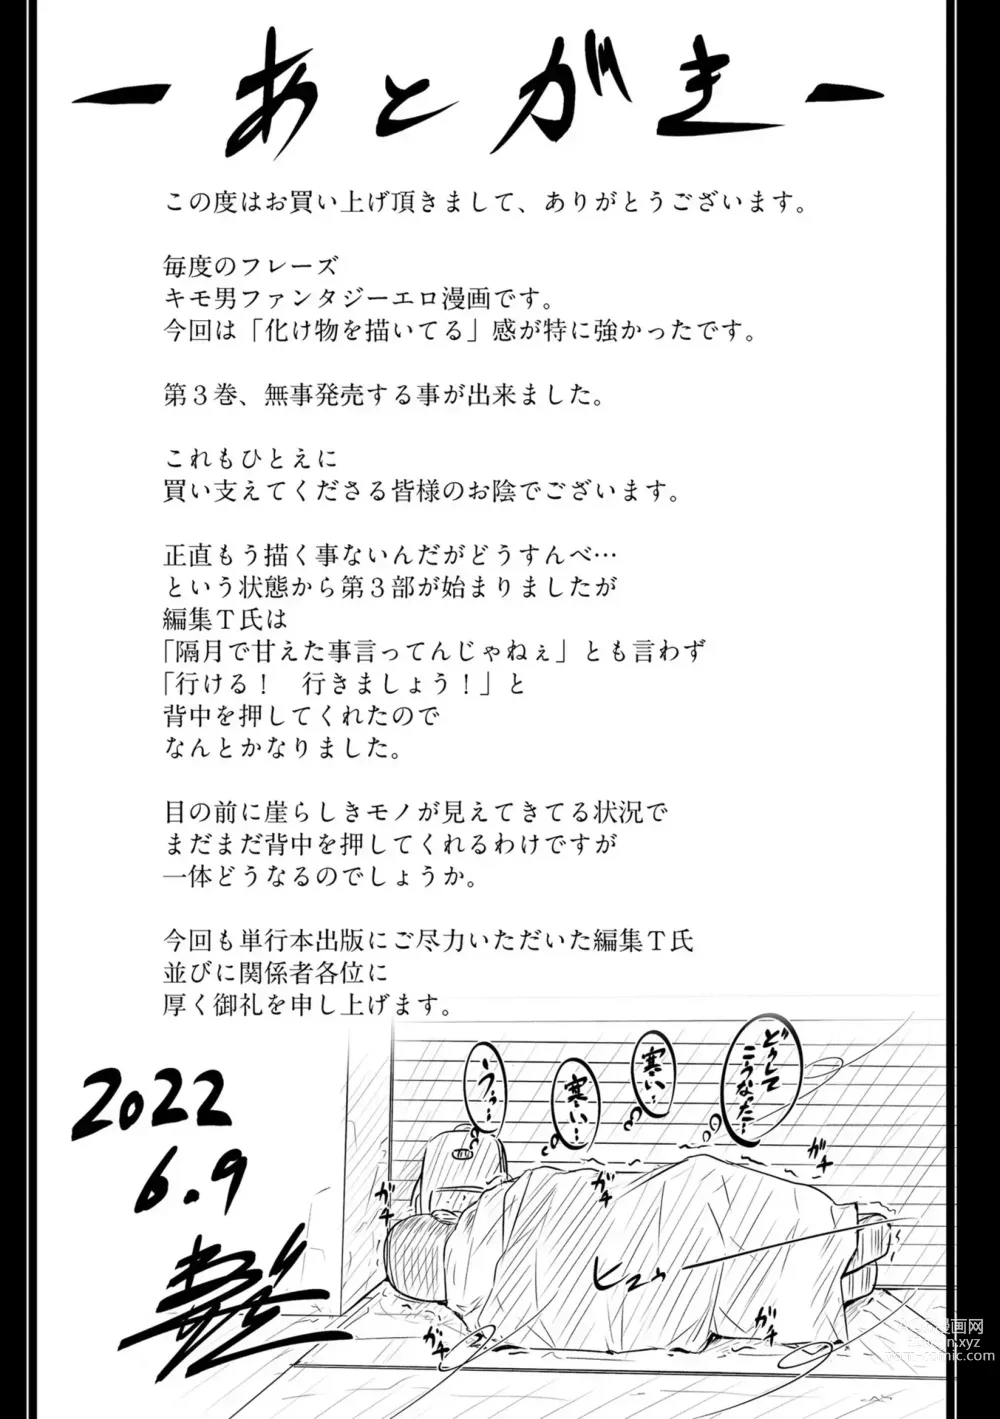 －あとがき－
この度はお買い上げ頂きまして、ありがとうございます。
毎度のフレーズ
キモ男ファンタジーエロ漫画です。
今回は「化け物を描いてる」感が特に強かったです。
第３巻、無事発売する事が出来ました。
これもひとえに
買い支えてくださる皆様のお陰でございます。
正直もう描く事ないんだがどうすんべ…
という状態から第３部が始まりましたが
編集Ｔ氏は
「隔月で甘えた事言ってんじゃねぇ」とも言わず
「行ける！　行きましょう！」と
背中を押してくれたので
なんとかなりました。
目の前に崖らしきモノが見えてきてる状況で
まだまだ背中を押してくれるわけですが
一体どうなるのでしょうか。
今回も単行本出版にご尽力いただいた編集Ｔ氏
並びに関係者各位に
厚く御礼を申し上げます。
どうして
こうなった…
寒い…
寒い…
うぅ…
ガチ
ガチ
ガチ
ガチ
ヒュゥ
2022
6.9